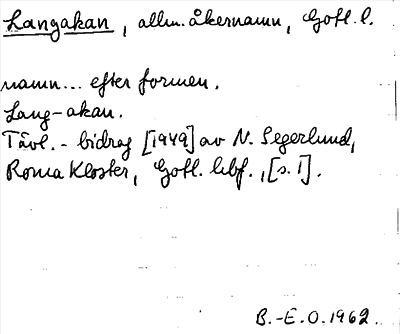 Langakan, allm. åkernamn, Gotl. l.
namn... efter formen.
Lang-akan.
Tävl.-bidrag [1949] av N. Segerlund,
Roma Kloster, Gotl. lbf., [s. 1].
B.-E.O. 1962.